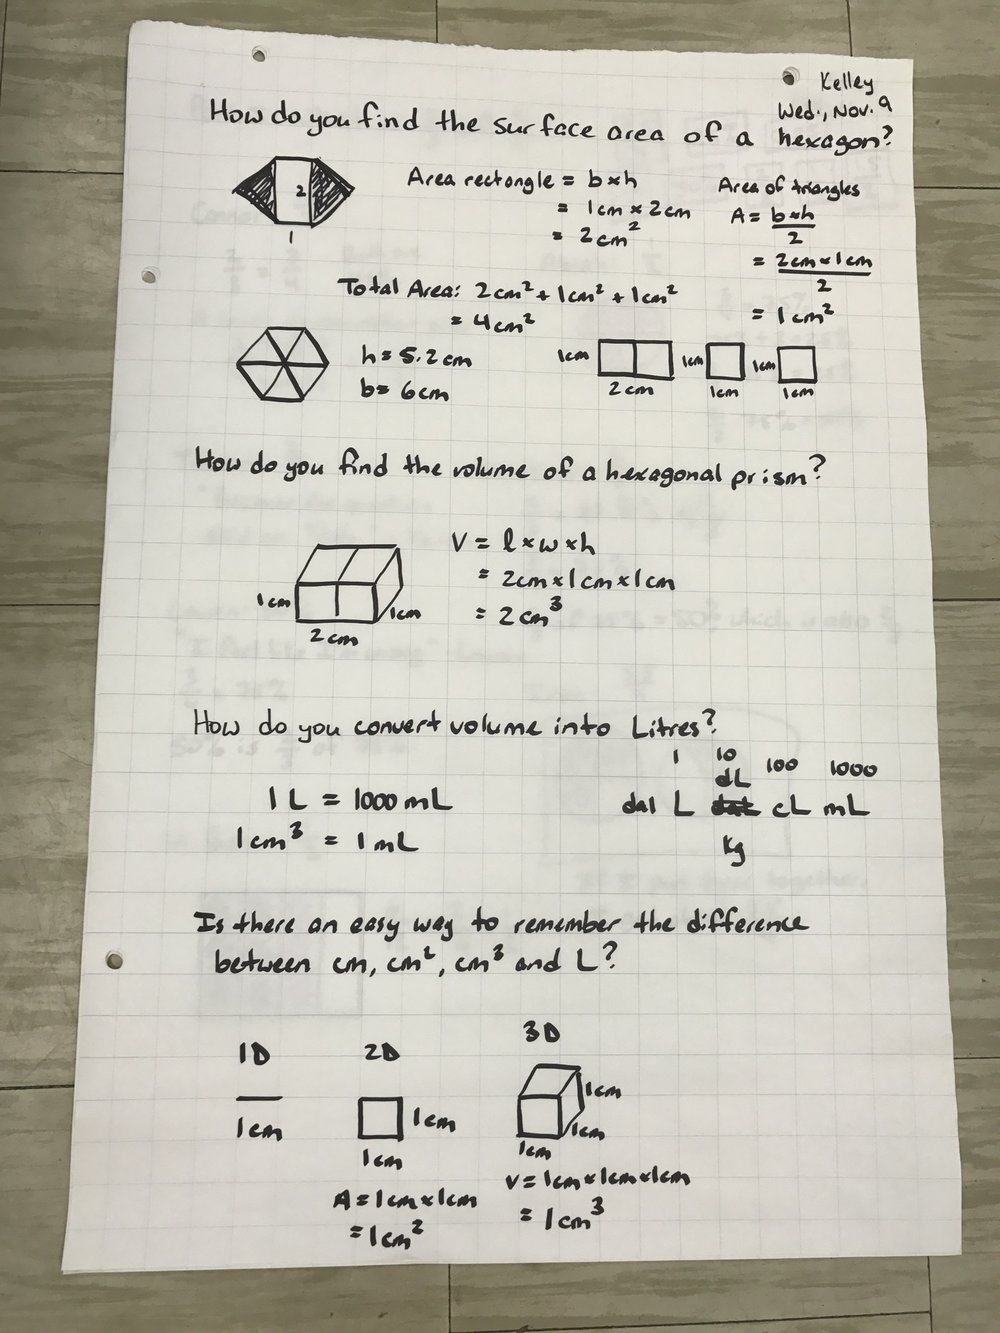 Kelley
Wed., Nov. 9
How do you find the surface area of a hexagon?
2
1
Area rectangle = b×h
= 1cm × 2cm
= 2cm²
Area of triangles
A = b×h
2
= 2cm×1cm
2
= 1cm²
Total Area: 2cm² + 1cm² + 1cm²
= 4cm²
h = 5.2cm
b = 6cm
1cm
2cm
1cm
1cm
1cm
1cm
How do you find the volume of a hexagonal prism?
1cm
2cm
1cm
V = l×w×h
= 2cm×1cm×1cm
= 2cm³
How do you convert volume into Litres?
1 L = 1000 mL
1cm³ = 1mL
1 10 100 1000
dL
dal L daL cL mL
kg
Is there an easy way to remember the difference
between cm, cm², cm³ and L?
1D
1cm
2D
1cm
1cm
A = 1cm×1cm
= 1cm²
3D
1cm
1cm
1cm
V = 1cm×1cm×1cm
= 1cm³